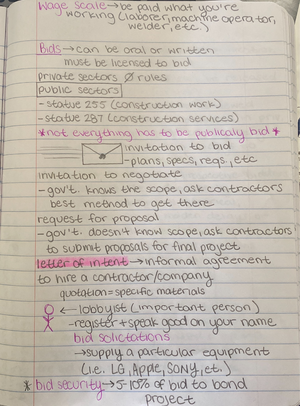 Wage scale → be paid what you're
working (laborer, machine operator,
welder, etc.)
Bids → can be oral or written
must be licensed to bid
private sectors Ø rules
public sectors
- statue 255 (construction work)
- statue 287 (construction services)
*not everything has to be publically bid*
invitation to bid
- plans, specs, reqs., etc
invitation to negotiate
- gov't. knows the scope, ask contractors
best method to get there
request for proposal
- gov't. doesn't know scope, ask contractors
to submit proposals for final project
letter of intent → informal agreement
to hire a contractor/company
quotation = specific materials
← lobbyist (important person)
- register + speak good on your name
bid solictations
→ supply a particular equipment
(i.e. LG, Apple, SONY, et.)
* bid security → 5-10% of bid to bond
project